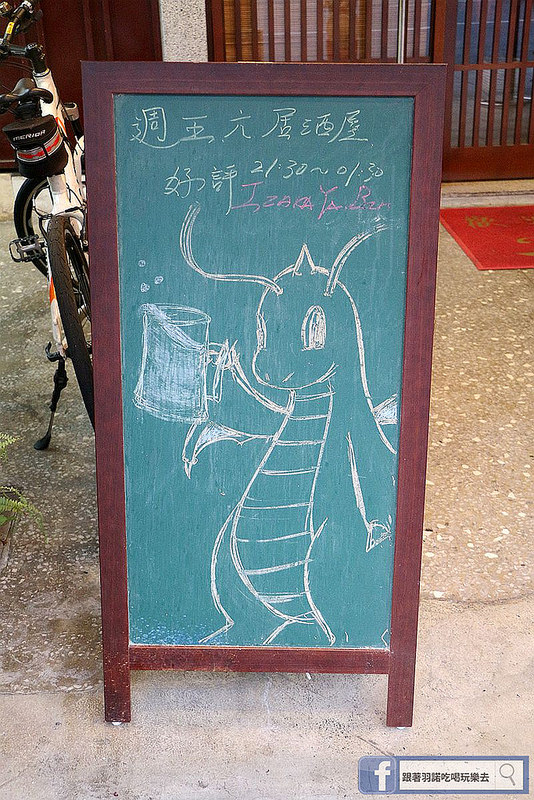 週五.六 居酒屋
好評 21:30~01:30
IZAKAYA.Bar
MERIDA
跟著羽諾吃喝玩樂去